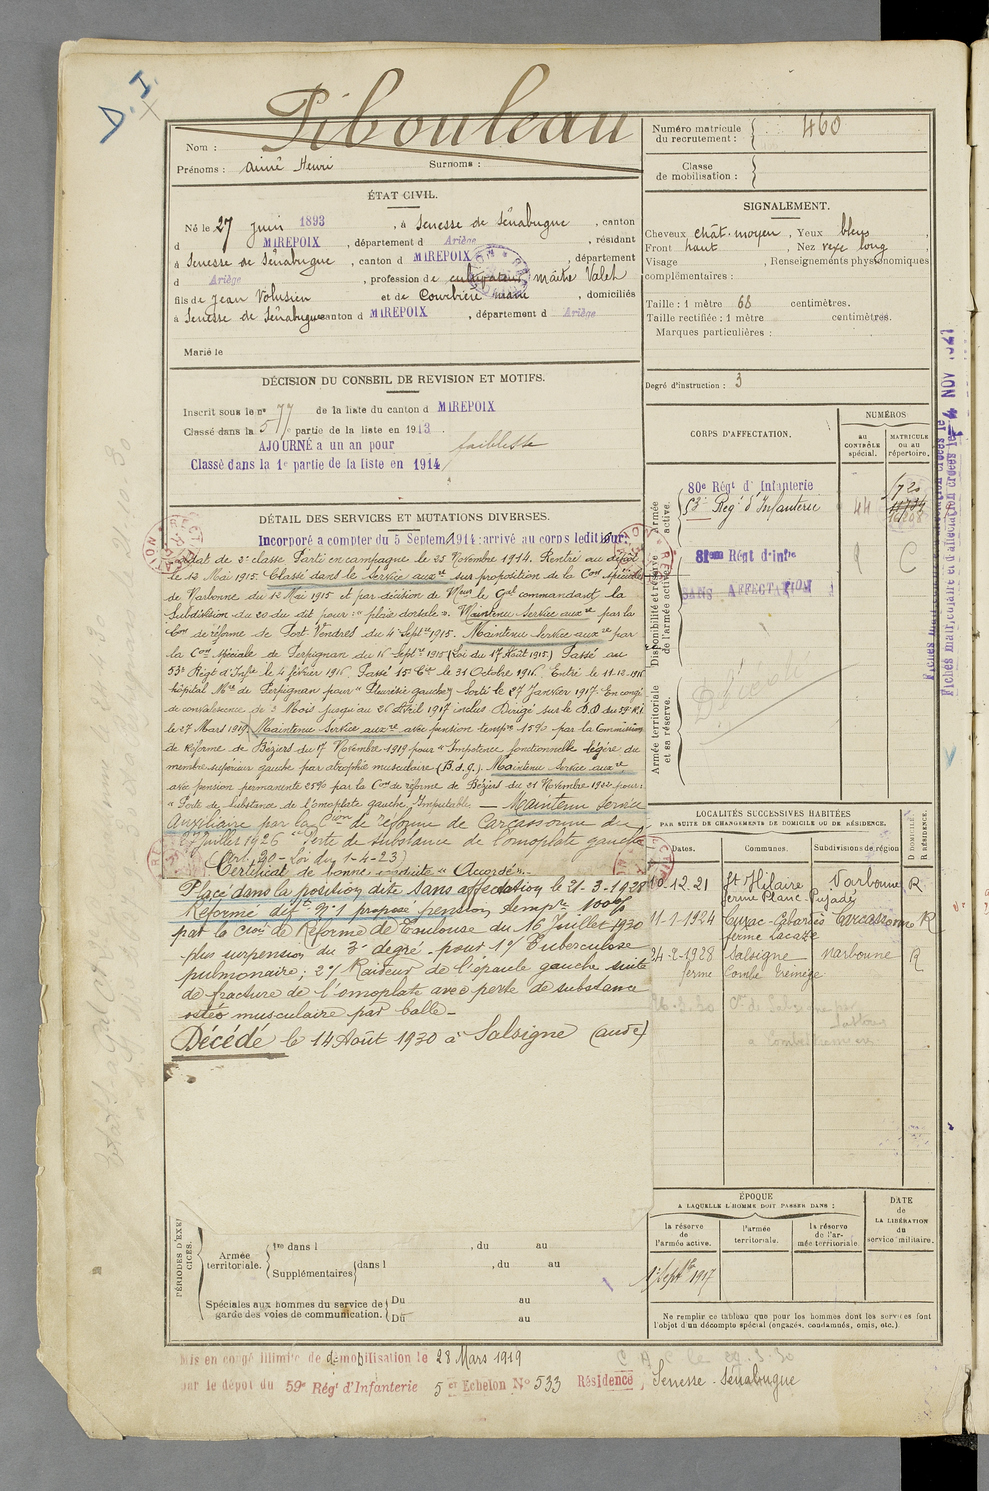 D. I.
Nom : Pibouleau
Prénoms : Aimé Henri Surnoms :
Numéro matricule du recrutement : 460
Classe de mobilisation :
ÉTAT CIVIL.
Né le 27 juin 1893, à Senesse de Sénabugue, canton
d MIREPOIX, département d Ariège, résidant
à Senesse de Sénabugue, canton d MIREPOIX, département
d Ariège, profession de cultivateur maître Valet
fils de Jean Volusien et de Courbière Marie, domiciliés
à Senesse de Sénabugue canton d MIREPOIX, département d Ariège
Marié le
SIGNALEMENT.
Cheveux chât. moyen, Yeux bleus
Front haut, Nez vexe long
Visage , Renseignements physionomiques
complémentaires :
Taille : 1 mètre 68 centimètres.
Taille rectifiée : 1 mètre centimètres.
Marques particulières :
Degré d'instruction : 3
DÉCISION DU CONSEIL DE REVISION ET MOTIFS.
Inscrit sous le n° 77 de la liste du canton d MIREPOIX
Classé dans la 5 partie de la liste en 1913.
AJOURNÉ a un an pour faiblesse
Classé dans la 1e partie de la liste en 1914
CORPS D'AFFECTATION.
NUMÉROS
au CONTRÔLE spécial.
MATRICULE ou au répertoire.
Armée active.
80e Régt d'Infanterie
53e Rég' d'Infanterie 44
Disponibilité et réserve de l'armée active.
81eme Régt d'infie C
SANS AFFECTATION
Armée territoriale et sa réserve.
Décédé
DÉTAIL DES SERVICES ET MUTATIONS DIVERSES.
Incorporé a compter du 5 Septem 1914 : arrivé au corps ledit jour.
Soldat de 2e classe Parti en campagne le 25 Novembre 1914. Rentré au dépôt
le 13 Mai 1915. Classé dans le Service auxre sur proposition de la Con spéciale
de Narbonne du 12 Mai 1915 et par décision de Mr le Gal commandant la
Subdivision du 20 du dit pour : "plaie dorsale". Maintenu Service auxre par la
Con de réforme de Port-Vendres du 4 Septre 1915. Maintenu Service auxre par
la Con spéciale de Perpignan du 16 Septre 1915 (Loi du 17 Août 1915) Passé au
53e Régt d'Infie le 4 février 1916. Passé 15e Cie le 31 Octobre 1916. Entré le 11-12-1916
hôpital Mre de Perpignan pour "Pleurésie gauche" Sorti le 27 Janvier 1917. En congé
de convalescence de 2 Mois jusqu'au 26 Avril 1917 inclus Dirigé sur le D.D du 59e R.I.
le 27 Mars 1919. Maintenu Service auxre avec pension tempre 15% par la Commission
de Réforme de Béziers du 17 Novembre 1919 pour "Impotence fonctionnelle légère du
membre supérieur gauche par atrophie musculaire (B.d.g.). Maintenu Service auxre
avec pension permanente 25% par la Con de réforme de Béziers du 21 Novembre 1922 pour :
"Perte de substance de l'omoplate gauche" Imputable — Maintenu Service
Auxiliaire par la Cion de réforme de Carcassonne du
27 Juillet 1926 "Perte de substance de l'omoplate gauche
(Art. 20 - Loi du 1-4-23)
Certificat de bonne conduite "Accordé".
Placé dans la position dite sans affectation le 21-3-1928
Réformé déft N°1 proposé pension tempre 100%
par la Cion de Réforme de Toulouse du 16 Juillet 1930
plus surpension du 3e degré pour 1°/ Tuberculose
pulmonaire ; 2°/ Raideur de l'épaule gauche suite
de fracture de l'omoplate avec perte de substance
ostéo musculaire par balle —
Décédé le 14 Août 1930 à Salsigne (Aude)
LOCALITÉS SUCCESSIVES HABITÉES
PAR SUITE DE CHANGEMENTS DE DOMICILE OU DE RÉSIDENCE.
Dates. Communes. Subdivisions de région D DOMICILE R RÉSIDENCE.
10-12-21 St Hilaire Narbonne R
ferme Planc-Pujade
11-1-1924 Cuxac-Cabardès Carcassonne R
ferme Lacaze
24-2-1928 Salsigne Narbonne R
ferme Combe
ÉPOQUE
A LAQUELLE L'HOMME DOIT PASSER DANS :
la réserve de l'armée active.
l'armée territoriale.
la réserve de l'armée territoriale.
DATE de LA LIBÉRATION du service militaire.
1er Septbre 1917
Ne remplir ce tableau que pour les hommes dont les services font
l'objet d'un décompte spécial (engagés, condamnés, omis, etc.).
PÉRIODES D'EXERCICES.
Armée territoriale.
1re dans l , du au
Supplémentaires dans l , du au
Spéciales aux hommes du service de garde des voies de communication.
Du au
Du au
Mis en congé illimité de démobilisation le 28 Mars 1919
par le dépôt du 59e Régt d'Infanterie 5e Echelon N° 533 Résidence Senesse-Sénabugue